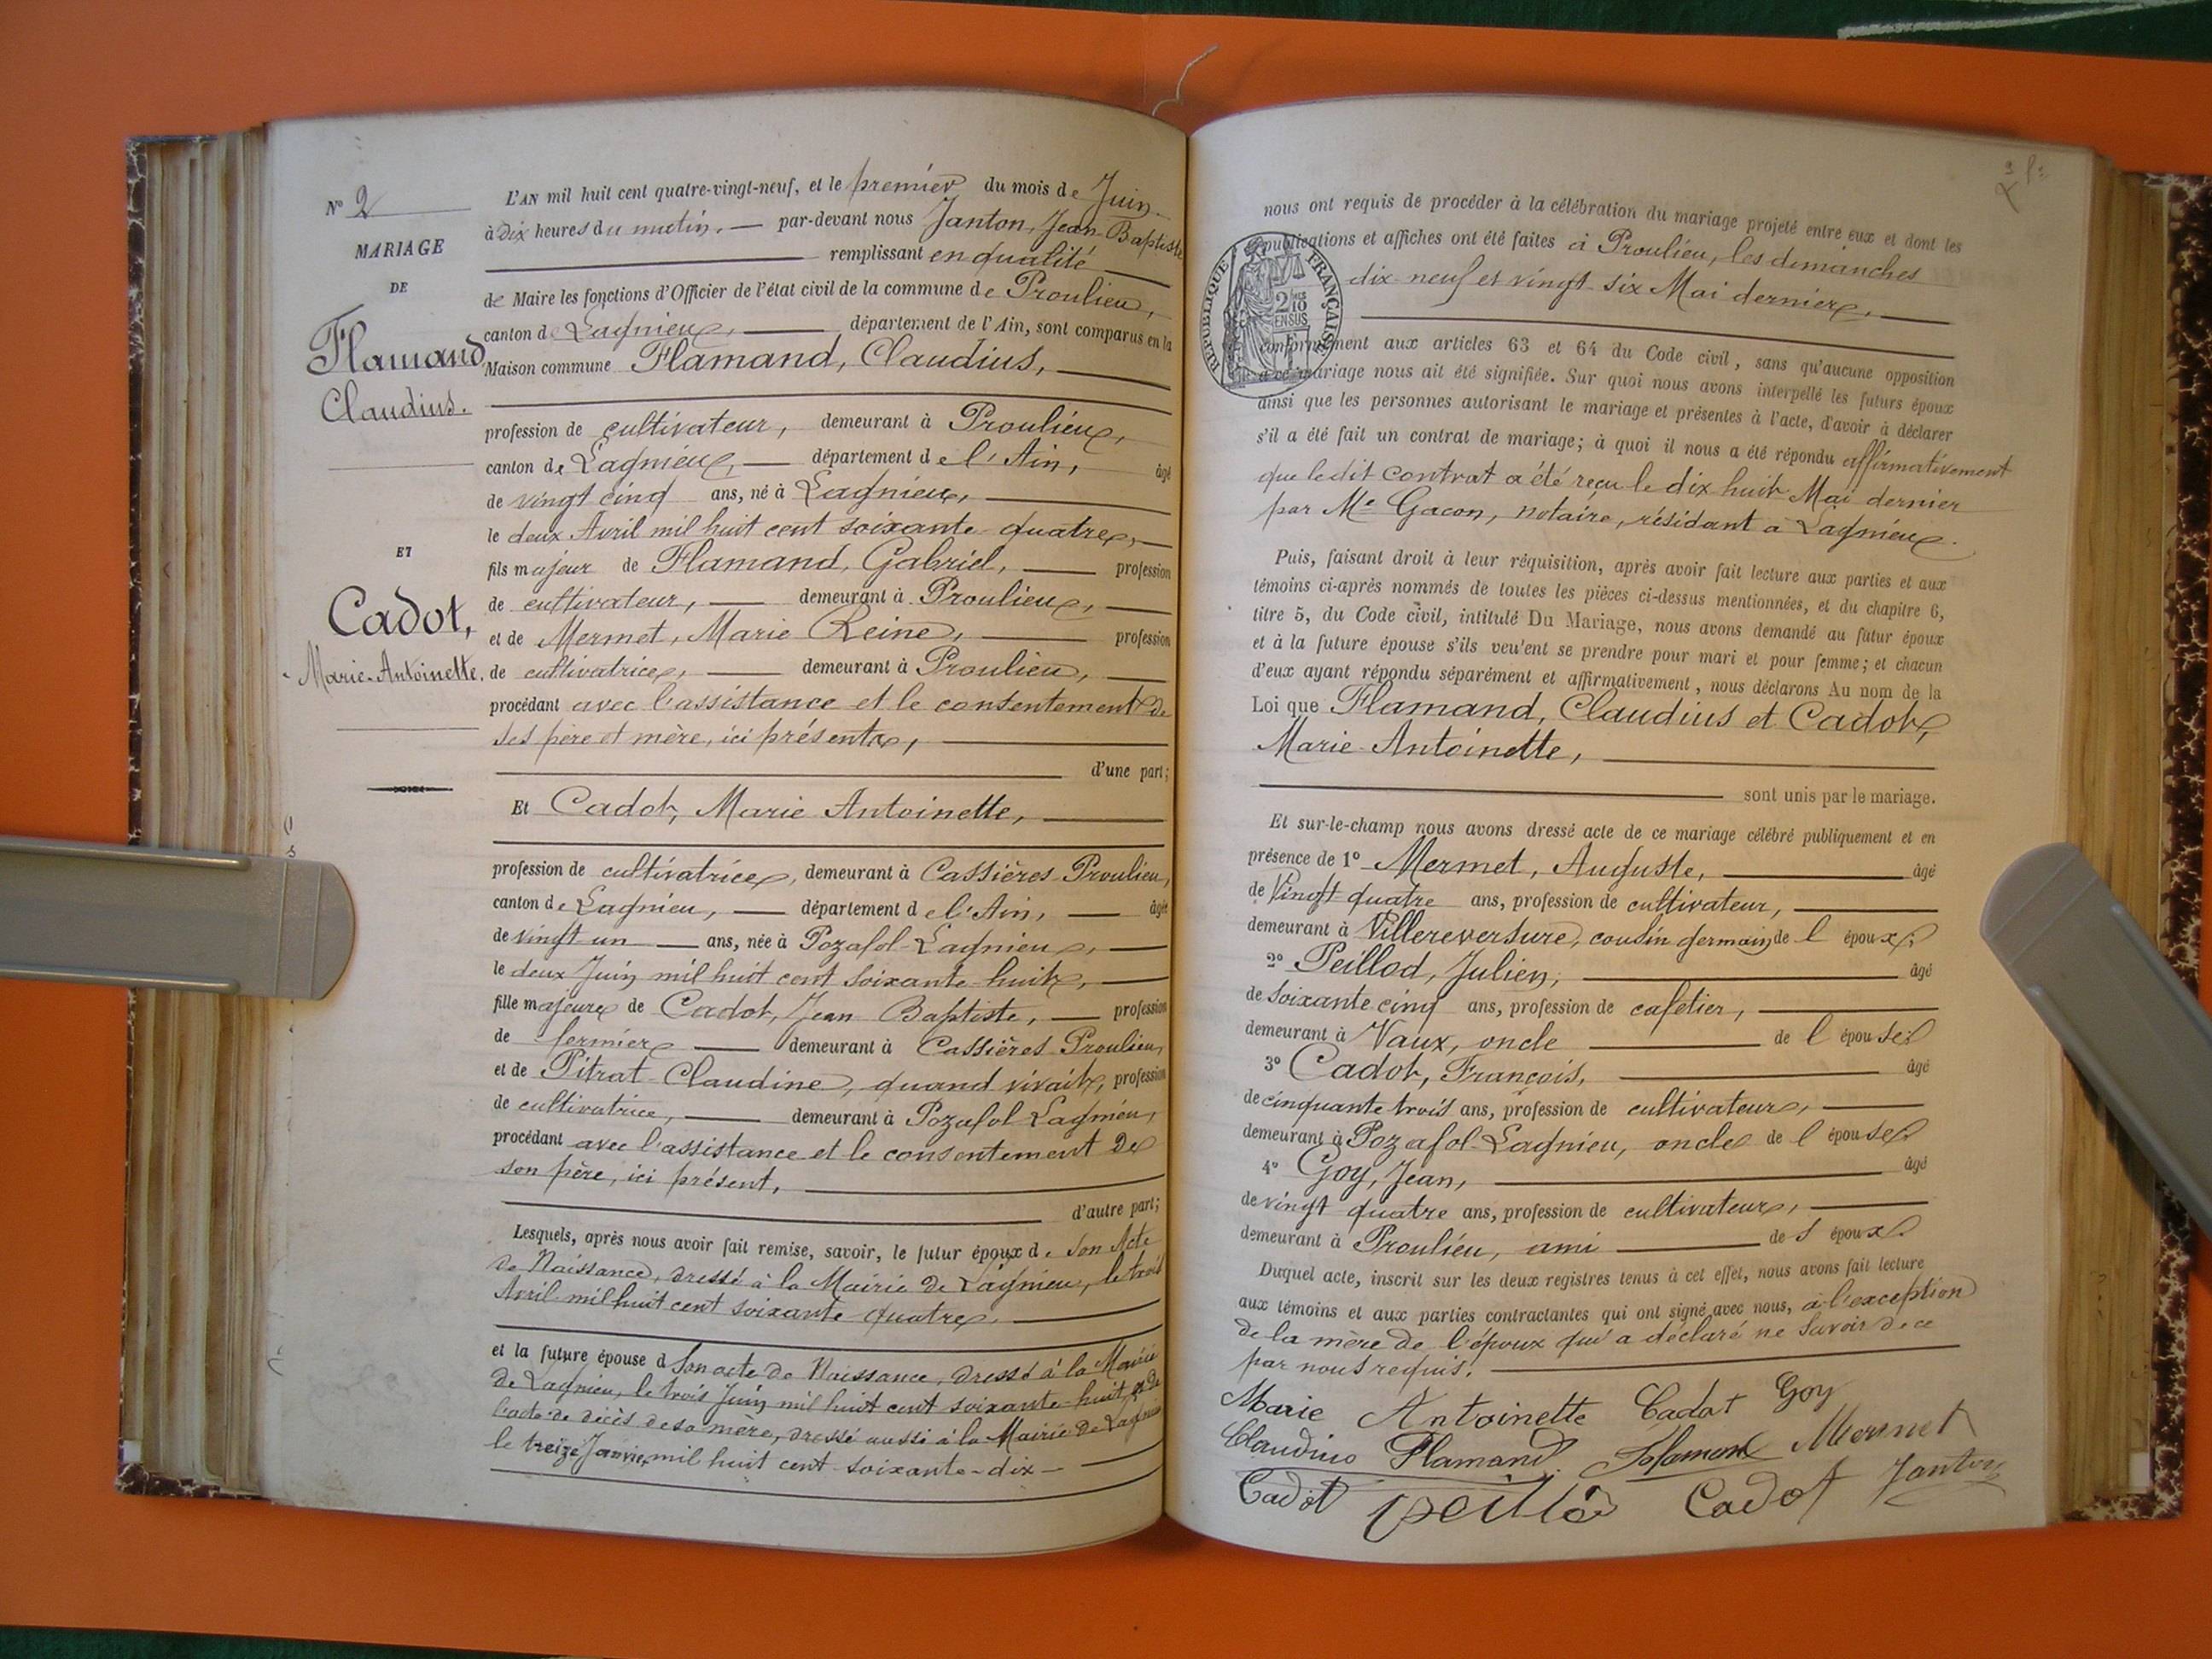 N° 2
MARIAGE
DE
Flamand,
Claudius.
ET
Cadot,
Marie-Antoinette.
L'AN mil huit cent quatre-vingt-neuf, et le premier du mois de Juin
à dix heures du matin, par-devant nous Janton, Jean-Baptiste
remplissant en qualité
de Maire les fonctions d'Officier de l'état civil de la commune de Proulieu,
canton de Lagnieu, département de l'Ain, sont comparus en la
Maison commune Flamand, Claudius,
profession de cultivateur, demeurant à Proulieu,
canton de Lagnieu, département de l'Ain, âgé
de vingt cinq ans, né à Lagnieu,
le deux Avril mil huit cent soixante quatre,
fils majeur de Flamand, Gabriel, profession
de cultivateur, demeurant à Proulieu,
et de Mermet, Marie Reine, profession
de cultivatrice, demeurant à Proulieu,
procédant avec l'assistance et le consentement de
ses père et mère, ici présents,
d'une part;
Et Cadot, Marie Antoinette,
profession de cultivatrice, demeurant à Cassières-Proulieu,
canton de Lagnieu, département de l'Ain, âgée
de vingt un ans, née à Pozafol-Lagnieu,
le deux Juin mil huit cent soixante huit,
fille majeure de Cadot, Jean Baptiste, profession
de fermier demeurant à Cassières-Proulieu,
et de Pitrat Claudine, quand vivait, profession
de cultivatrice, demeurant à Pozafol Lagnieu,
procédant avec l'assistance et le consentement de
son père, ici présent,
d'autre part;
Lesquels, après nous avoir fait remise, savoir, le futur époux de son Acte
de Naissance, dressé à la Mairie de Lagnieu, le trois
Avril mil huit cent soixante quatre,
et la future épouse d son acte de Naissance, dressé à la Mairie
de Lagnieu, le trois Juin mil huit cent soixante-huit et de
l'acte de décès de sa mère, dressé aussi à la Mairie de Lagnieu
le treize Janvier mil huit cent soixante-dix
nous ont requis de procéder à la célébration du mariage projeté entre eux et dont les
publications et affiches ont été faites à Proulieu, les dimanches
dix neuf et vingt six Mai dernier,
RÉPUBLIQUE FRANÇAISE
2/10
EN SUS
conformément aux articles 63 et 64 du Code civil, sans qu'aucune opposition
à ce mariage nous ait été signifiée. Sur quoi nous avons interpellé les futurs époux
ainsi que les personnes autorisant le mariage et présentes à l'acte, d'avoir à déclarer
s'il a été fait un contrat de mariage; à quoi il nous a été répondu affirmativement
que le dit contrat a été reçu le dix huit Mai dernier
par Me Gacon, notaire, résidant à Lagnieu.
Puis, faisant droit à leur réquisition, après avoir fait lecture aux parties et aux
témoins ci-après nommés de toutes les pièces ci-dessus mentionnées, et du chapitre 6,
titre 5, du Code civil, intitulé Du Mariage, nous avons demandé au futur époux
et à la future épouse s'ils veulent se prendre pour mari et pour femme; et chacun
d'eux ayant répondu séparément et affirmativement, nous déclarons Au nom de la
Loi que Flamand, Claudius et Cadot,
Marie-Antoinette,
sont unis par le mariage.
Et sur-le-champ nous avons dressé acte de ce mariage célébré publiquement et en
présence de 1° Mermet, Auguste, âgé
de Vingt quatre ans, profession de cultivateur,
demeurant à Villereversure, cousin germain de l époux;
2° Peillod, Julien, âgé
de soixante cinq ans, profession de cafetier,
demeurant à Vaux, oncle de l épouse;
3° Cadot, François, âgé
de cinquante trois ans, profession de cultivateur,
demeurant à Pozafol-Lagnieu, oncle de l épouse
4° Goy, Jean, âgé
de vingt quatre ans, profession de cultivateur,
demeurant à Proulieu, ami de l époux
Duquel acte, inscrit sur les deux registres tenus à cet effet, nous avons fait lecture
aux témoins et aux parties contractantes qui ont signé avec nous, à l'exception
de la mère de l'époux qui a déclaré ne savoir de ce
par nous requis.
Marie Antoinette Cadot Goy
Claudius Flamand Flamand Mermet
Cadot peillod Cadot Janton